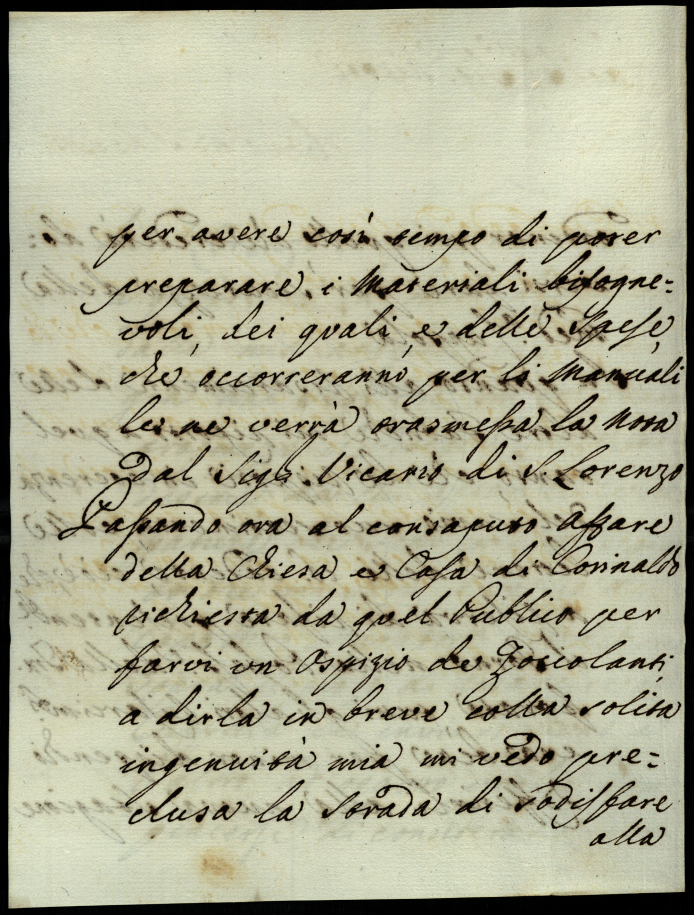 per avere così tempo di poter
preparare i Materiali bisogne=
voli, dei quali, e delle spese,
che occorreranno, per li Manuali
le ne verrà trasmessa la nota
dal Sigr Vicario di S Lorenzo
Passando ora al consaputo affare
della Chiesa e Casa di Corinaldo
richiesta da quel Publico per
farvi un Ospizio de Zoccolanti,
a dirla in breve colla solita
ingenuità mia mi vedo pre=
clusa la strada di sodisfare
alla